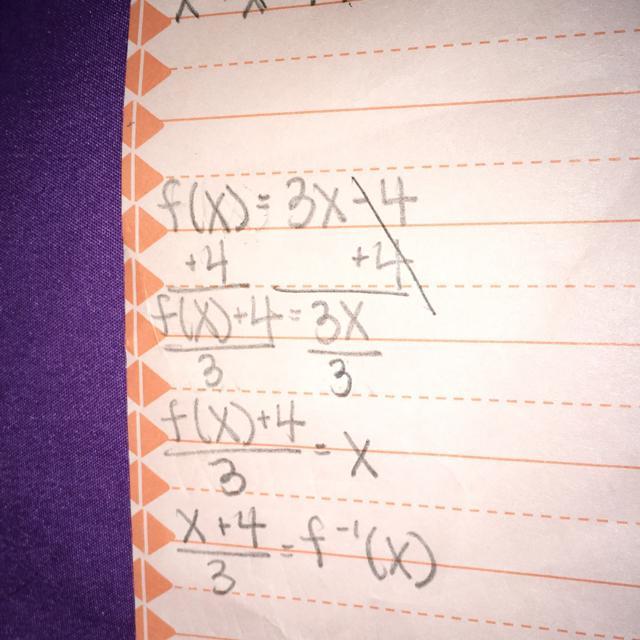 f(x) = 3x - 4
+4 +4
f(x)+4 = 3x
3 3
f(x)+4
3 = x
x+4
3 = f⁻¹(x)